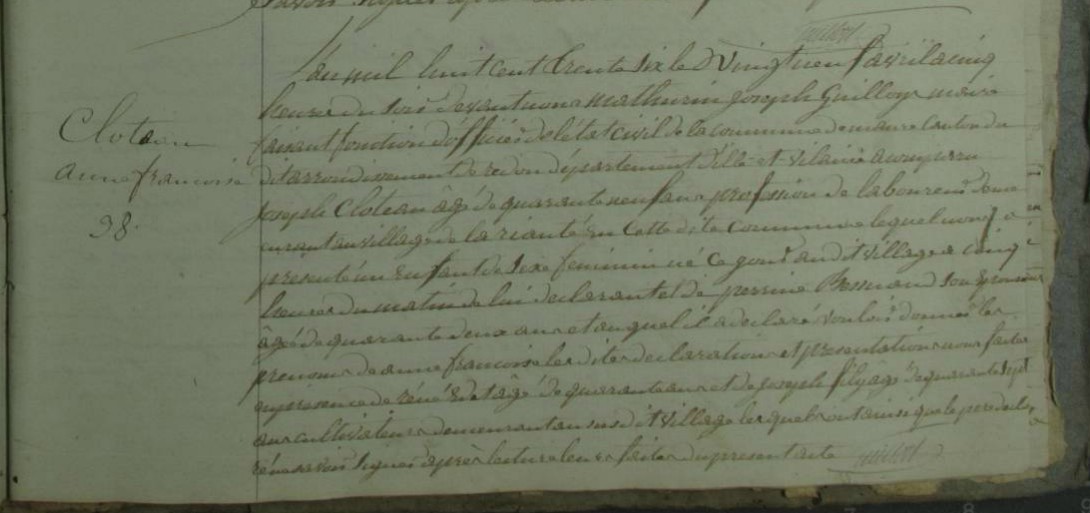 savoir signer après
Guillory
L'an mil huit cent trente six le vingt neuf avril a cinq
heures du soir devant nous mathurin joseph Guillory maire
Cloteau
faisant fonction d'officier de l'état civil de la commune de maure canton du
anne francoise
dit arrondissement de redon département d'ille et vilaine a comparu
38
joseph Cloteau âgé de quarante neuf ans profession de laboureur deme
urant au village de la riauté en cette dite commune lequel nous a
présenté un enfant de sexe feminin né ce jour au dit village a cinq
heures du matin de lui declarant et de perrine son epouse
âgé de quarante deux ans et auquel il a declaré vouloir donner les
prenoms de anne francoise les dites declaration et presentation nous faites
en presence de réné âgé de quarante ans et de joseph âgé de quarante sept
ans cultivateurs demeurant au susdit village lesquels ont ainsi que le pere declaré
ne savoir signer après lecture leur faite du present acte
Guillory